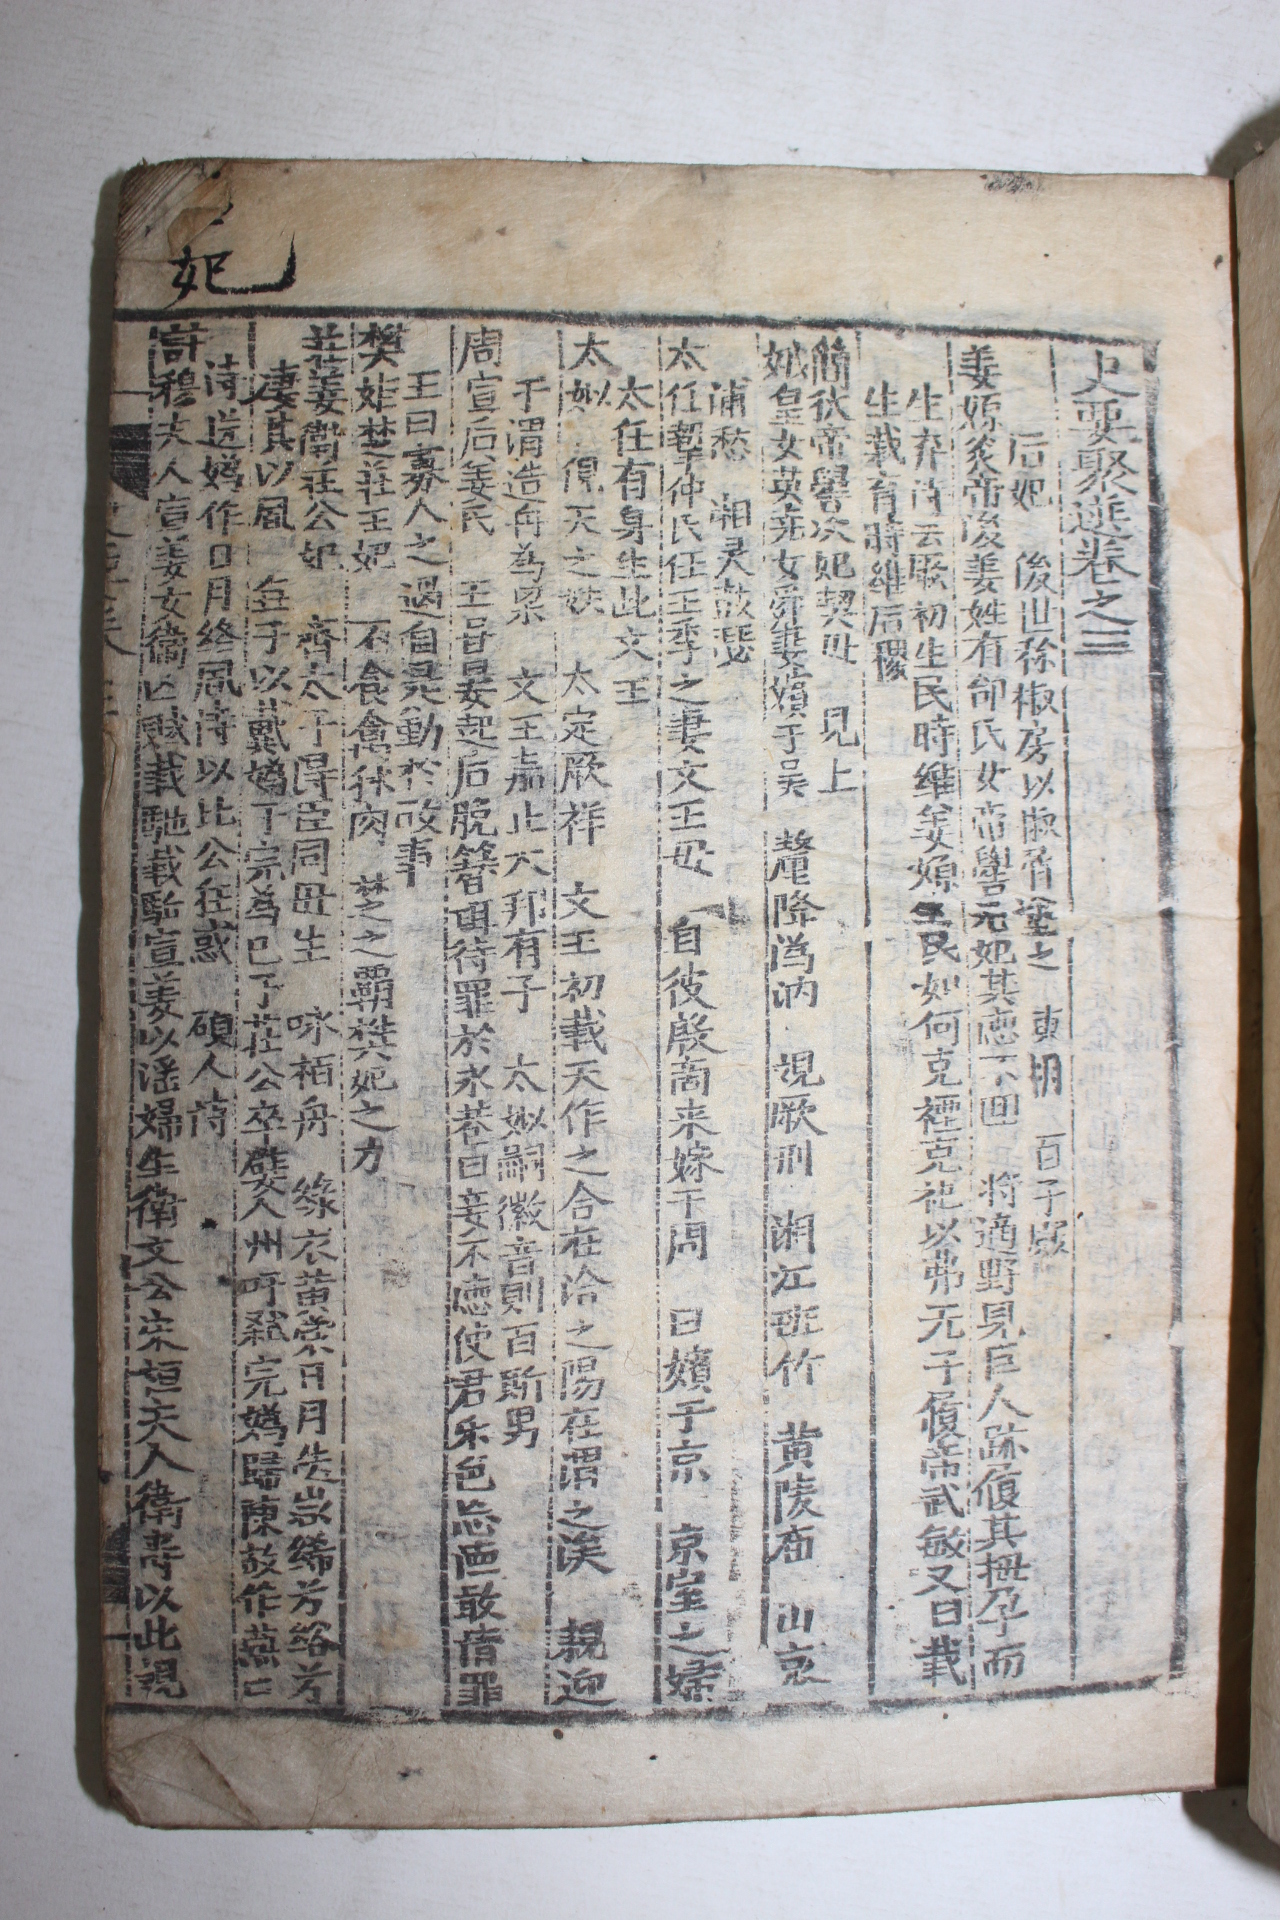 史要聚選卷之三
后妃 後世稱椒房以椒屑塗之 東朝 百子帳
姜嫄炎帝後姜姓有邰氏女帝嚳元妃其德不回 將適野見巨人跡履其拇孕而
生弃 詩云厥初生民時維姜嫄生民如何克禋克祀以弗无子履帝武敏又曰載
生載育時維后稷
簡狄帝嚳次妃契母 見上
娥皇女英堯女舜妻嬪于吳 釐降潙汭 覌厥刑 湘江班竹 黄陵庙 山哀
浦愁 湘灵鼓瑟
太任摯仲氏任王季之妻文王母 自彼殷商来嫁于周 曰嬪于京 京室之婦
太任有身生此文王
太姒 俔天之妹 太定厥祥 文王初載天作之合在洽之陽在渭之涘 親迎
于渭造舟爲梁 文王嘉止大邦有子 太姒嗣徽音則百斯男
周宣后姜氏 王甞晏起后脫簪珥待罪於永巷曰妾不德使君乐色忘德敢請罪
王曰寡人之過自是勤於政事
樊姬楚莊王妃 不食禽獸肉 楚之覇樊妃之力
莊姜衛莊公妃 齊太子得臣同母生 咏栢舟 綠衣黄裳日月失㞢絺兮綌兮
凄其以風 無子以戴嬀子完爲己子莊公卒嬖人州吁弑完嬀歸陳故作燕二
詩送嬀作日月終風詩以比公狂惑 碩人詩
許穆夫人宣姜女衛亡賦載馳載驅宣姜以淫婦生衛文公宋桓夫人衛壽以此覌
妃